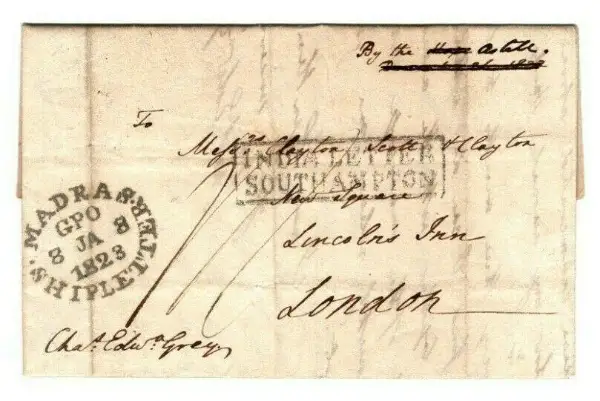 By the Astell.
To
Messrs. Clayton Scott & Clayton
INDIA LETTER
SOUTHAMPTON
New Square
Lincoln's Inn
London
MADRAS
SHIPLETTER
GPO
8 JA 8
1823
Chas. Edwd. Grey